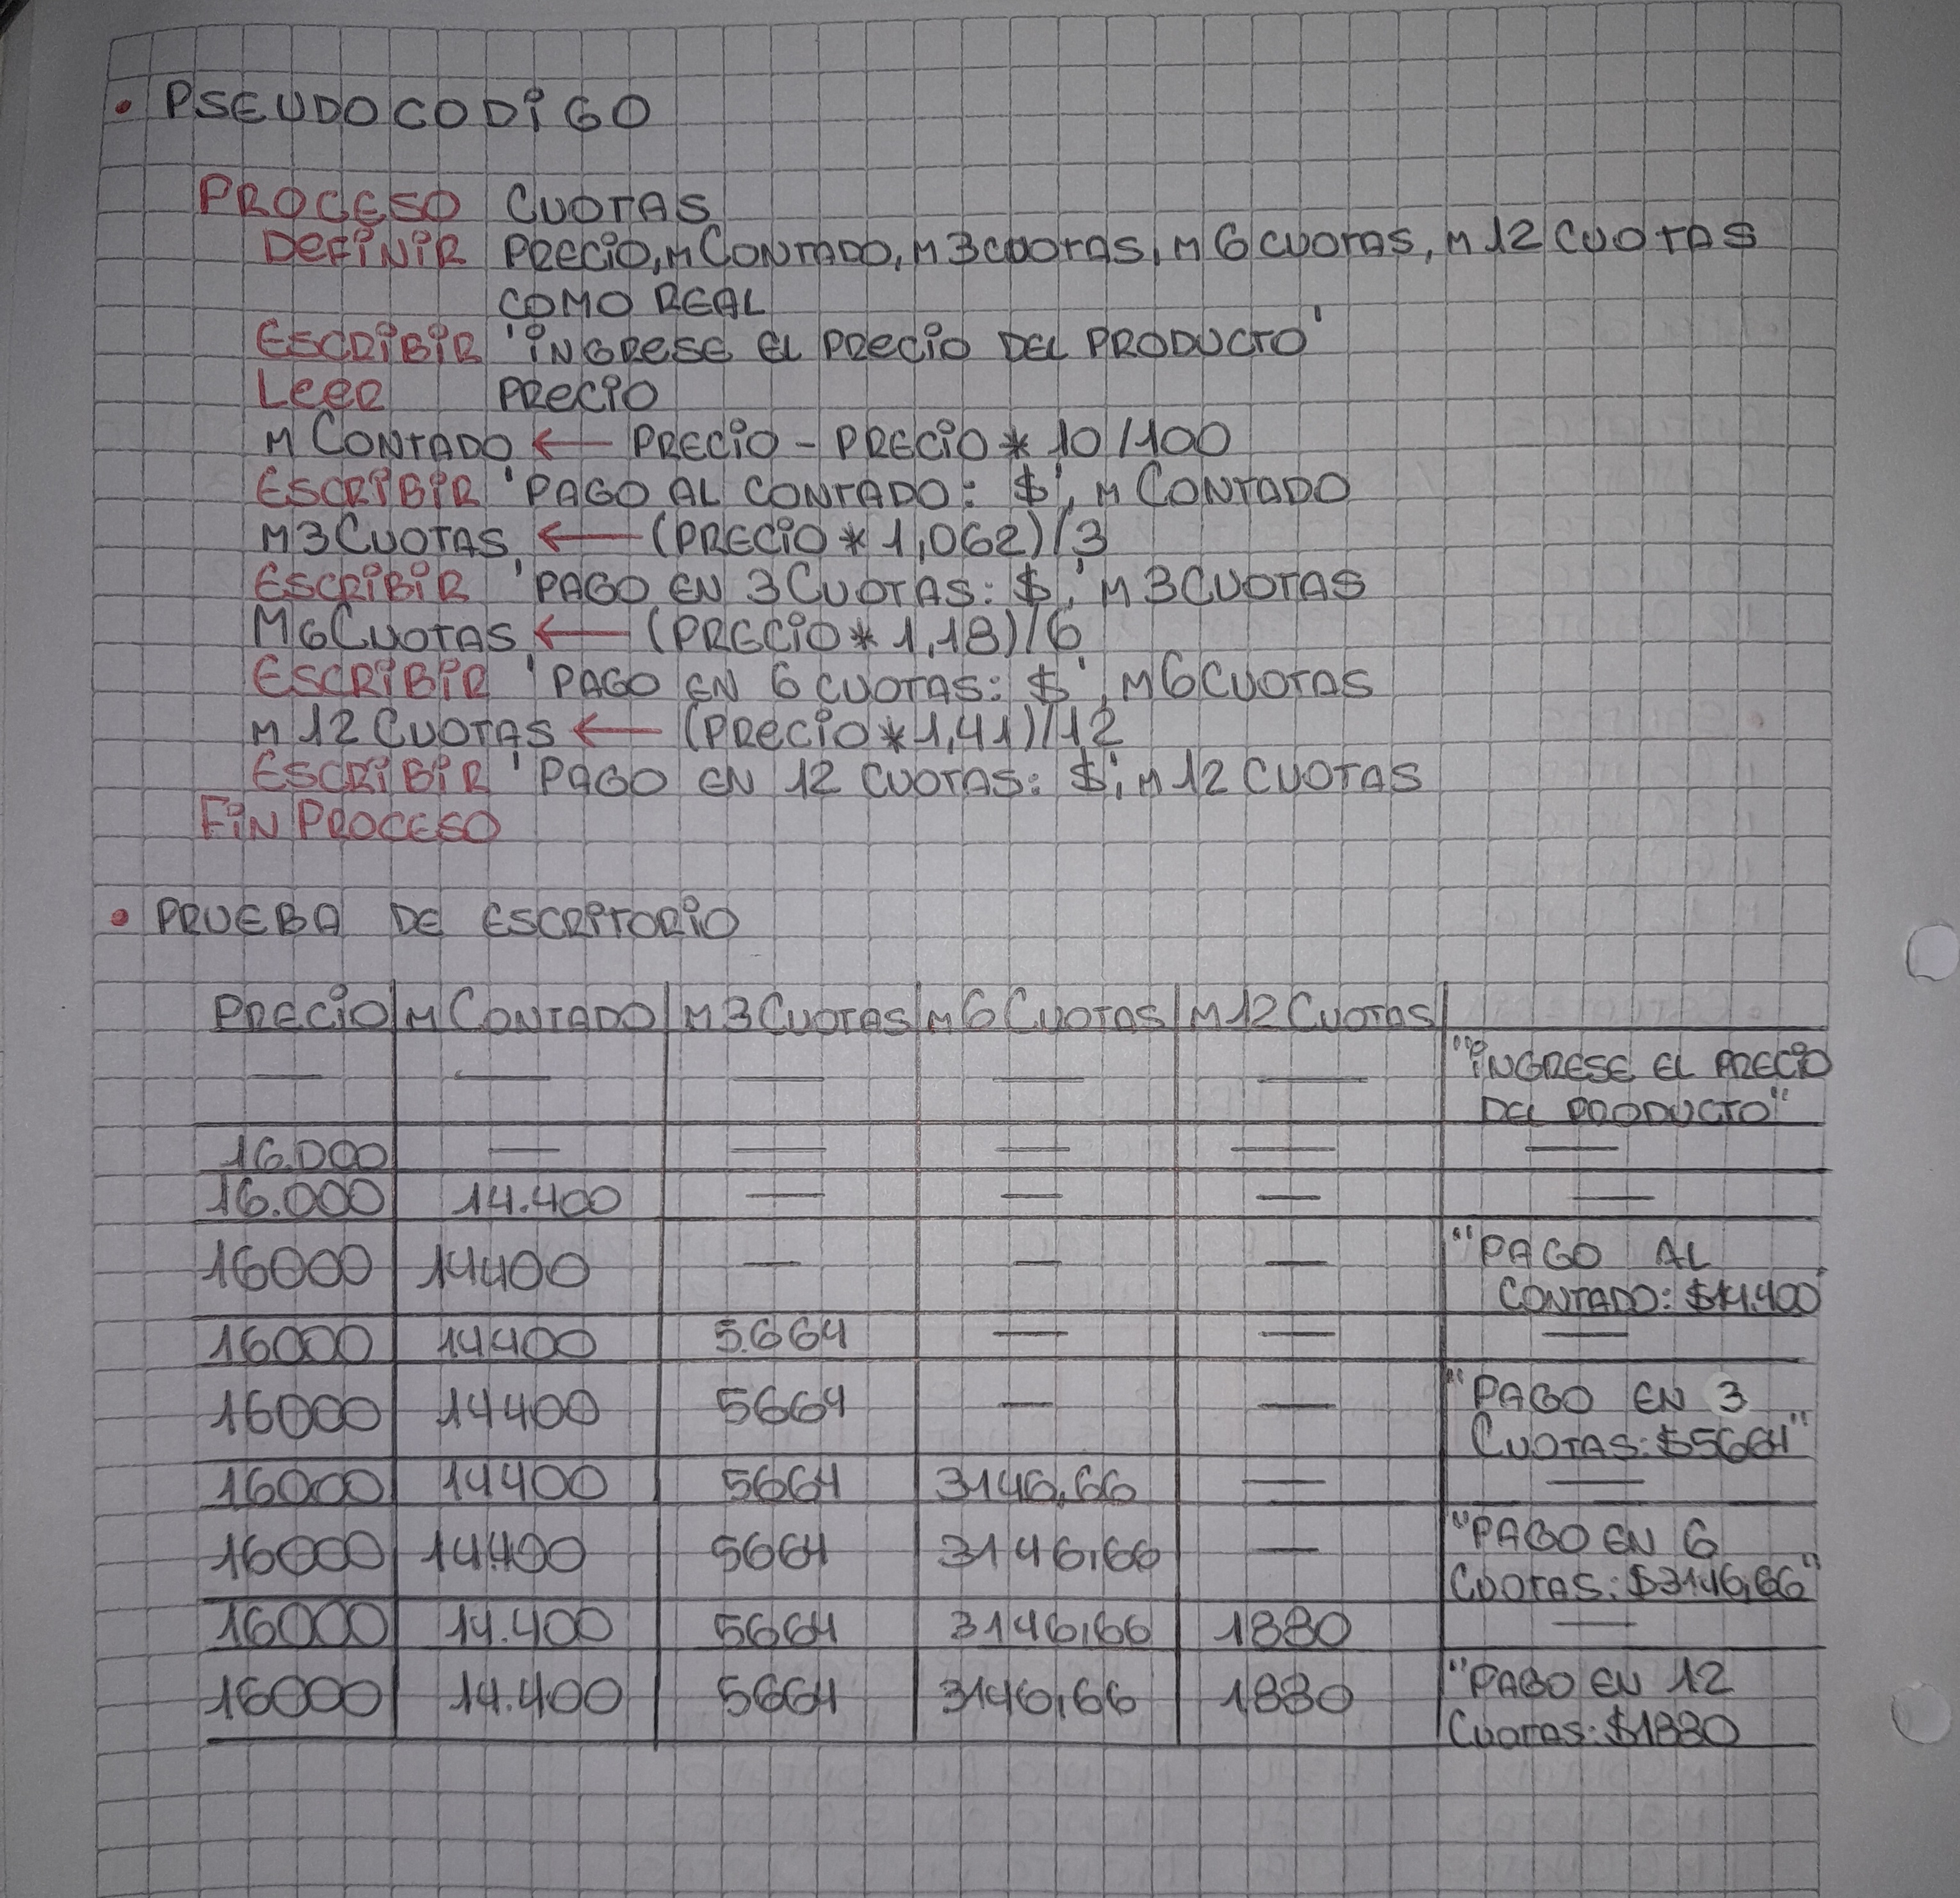 • PSEUDOCODIGO
PROCESO CUOTAS
DEFINIR PRECIO, MCONTADO, M3CUOTAS, M6CUOTAS, M12CUOTAS
COMO REAL
ESCRIBIR 'INGRESE EL PRECIO DEL PRODUCTO'
LEER PRECIO
MCONTADO ← PRECIO - PRECIO * 10/100
ESCRIBIR 'PAGO AL CONTADO: $', MCONTADO
M3CUOTAS ← (PRECIO * 1,062)/3
ESCRIBIR 'PAGO EN 3 CUOTAS: $', M3CUOTAS
M6CUOTAS ← (PRECIO * 1,18)/6
ESCRIBIR 'PAGO EN 6 CUOTAS: $', M6CUOTAS
M12CUOTAS ← (PRECIO * 1,41)/12
ESCRIBIR 'PAGO EN 12 CUOTAS: $', M12CUOTAS
FIN PROCESO
• PRUEBA DE ESCRITORIO
PRECIO MCONTADO M3CUOTAS M6CUOTAS M12CUOTAS
— — — — — "INGRESE EL PRECIO
DEL PRODUCTO"
16.000 — — — — —
16.000 14.400 — — — —
16000 14400 — — — "PAGO AL
CONTADO: $14.400"
16000 14400 5.664 — — —
16000 14400 5664 — — "PAGO EN 3
CUOTAS: $5664"
16000 14400 5664 3146,66 — —
16000 14.400 5664 3146,66 — "PAGO EN 6
CUOTAS: $3146,66"
16000 14.400 5664 3146,66 1880 —
16000 14.400 5664 3146,66 1880 "PAGO EN 12
CUOTAS: $1880